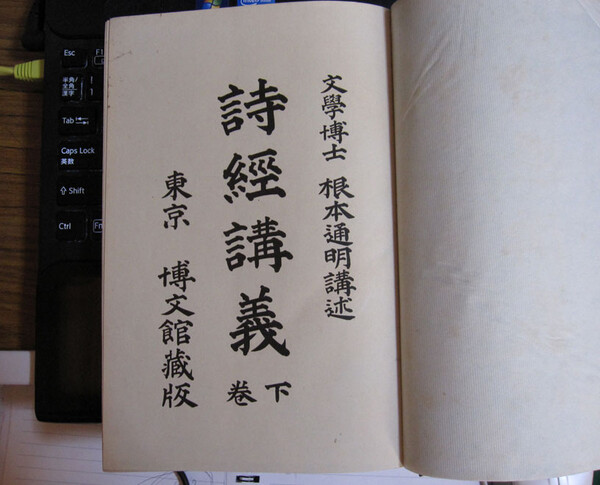 文學博士 根本通明講述
詩經講義
下卷
東京 博文館藏版
Esc
F1
半角/
全角
漢字
Tab
Caps Lock
英数
Shift
Ctrl
Fn